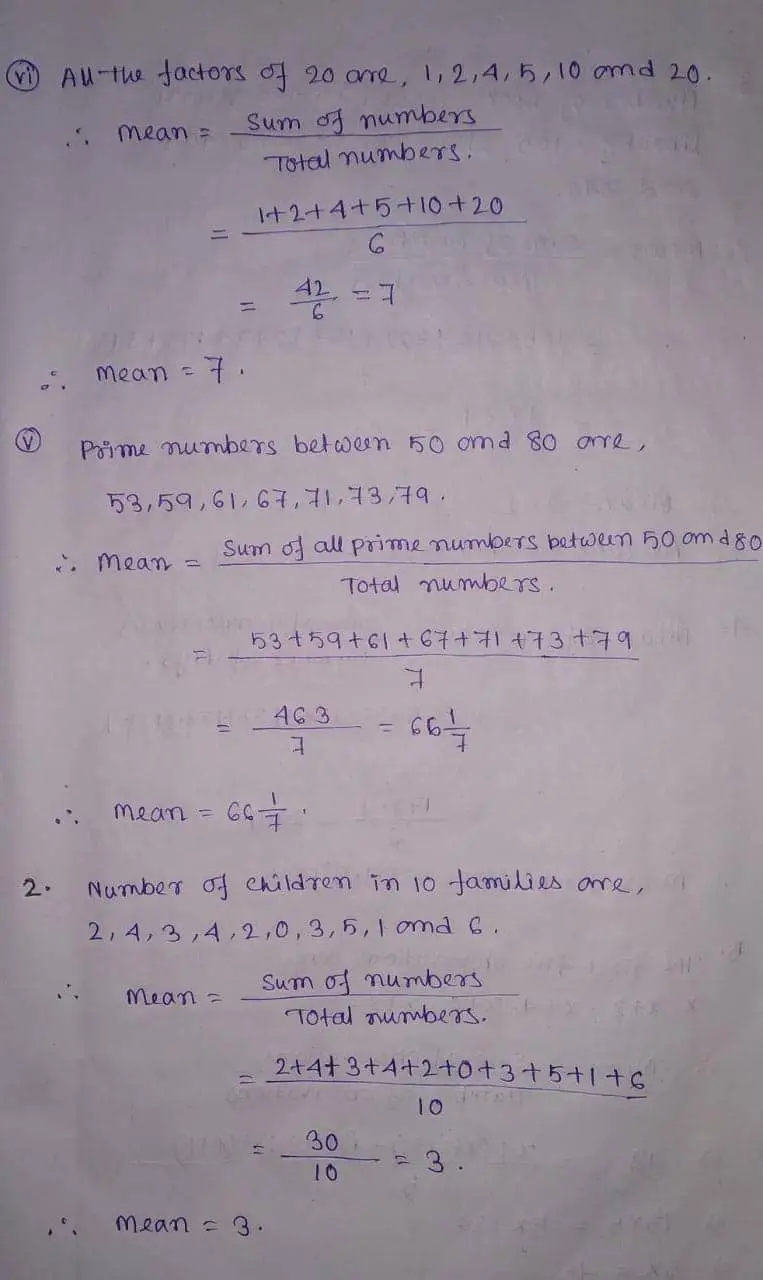 (vi) All the factors of 20 are, 1, 2, 4, 5, 10 and 20.
∴ mean = Sum of numbers / Total numbers.
= 1+2+4+5+10+20 / 6
= 42/6 = 7
∴ mean = 7.
(v) Prime numbers between 50 and 80 are,
53, 59, 61, 67, 71, 73, 79.
∴ Mean = Sum of all prime numbers between 50 and 80 / Total numbers.
= 53+59+61+67+71+73+79 / 7
= 463/7 = 66 1/7
∴ mean = 66 1/7.
2. Number of children in 10 families are,
2, 4, 3, 4, 2, 0, 3, 5, 1 and 6.
∴ Mean = Sum of numbers / Total numbers.
= 2+4+3+4+2+0+3+5+1+6 / 10
= 30/10 = 3.
∴ mean = 3.